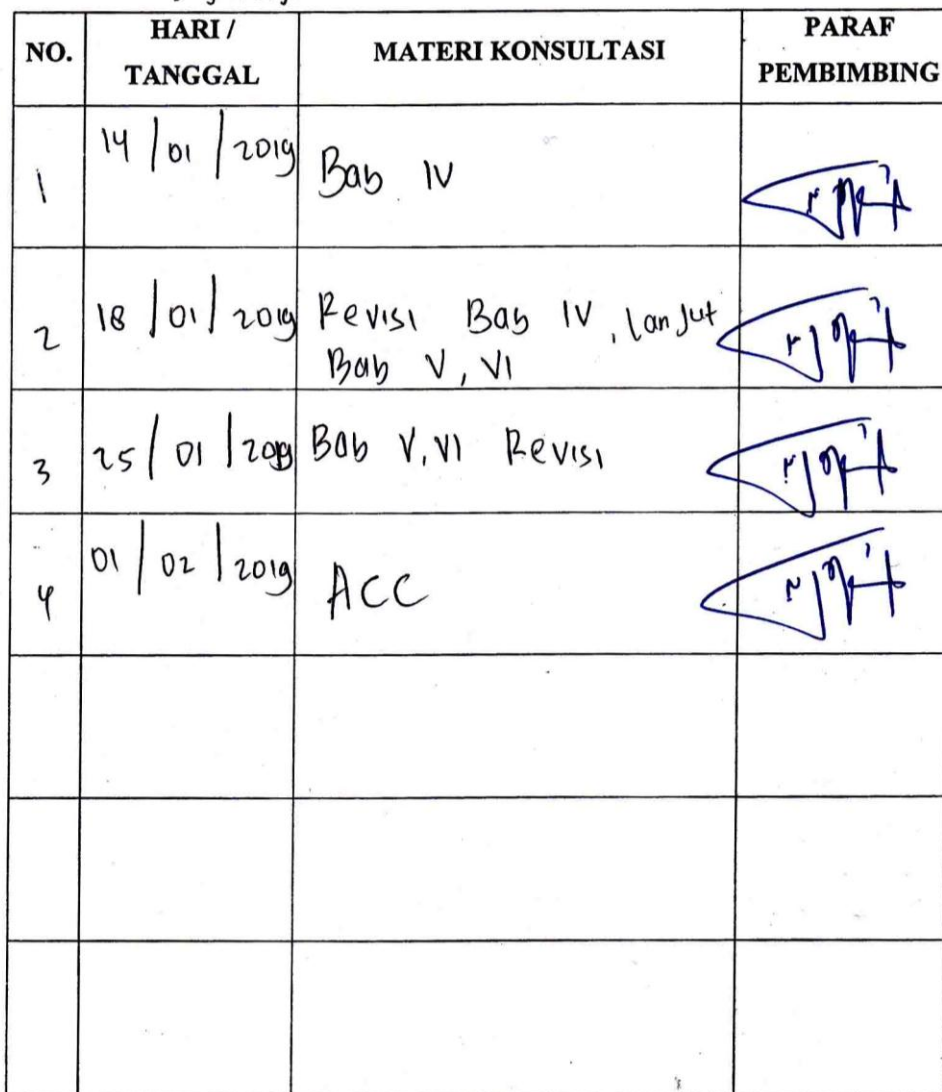 NO.
HARI /
TANGGAL
MATERI KONSULTASI
PARAF
PEMBIMBING
1
14/01/2019
Bab IV
2
18/01/2019
Revisi Bab IV, lanjut
Bab V, VI
3
25/01/2019
Bab V, VI Revisi
4
01/02/2019
ACC